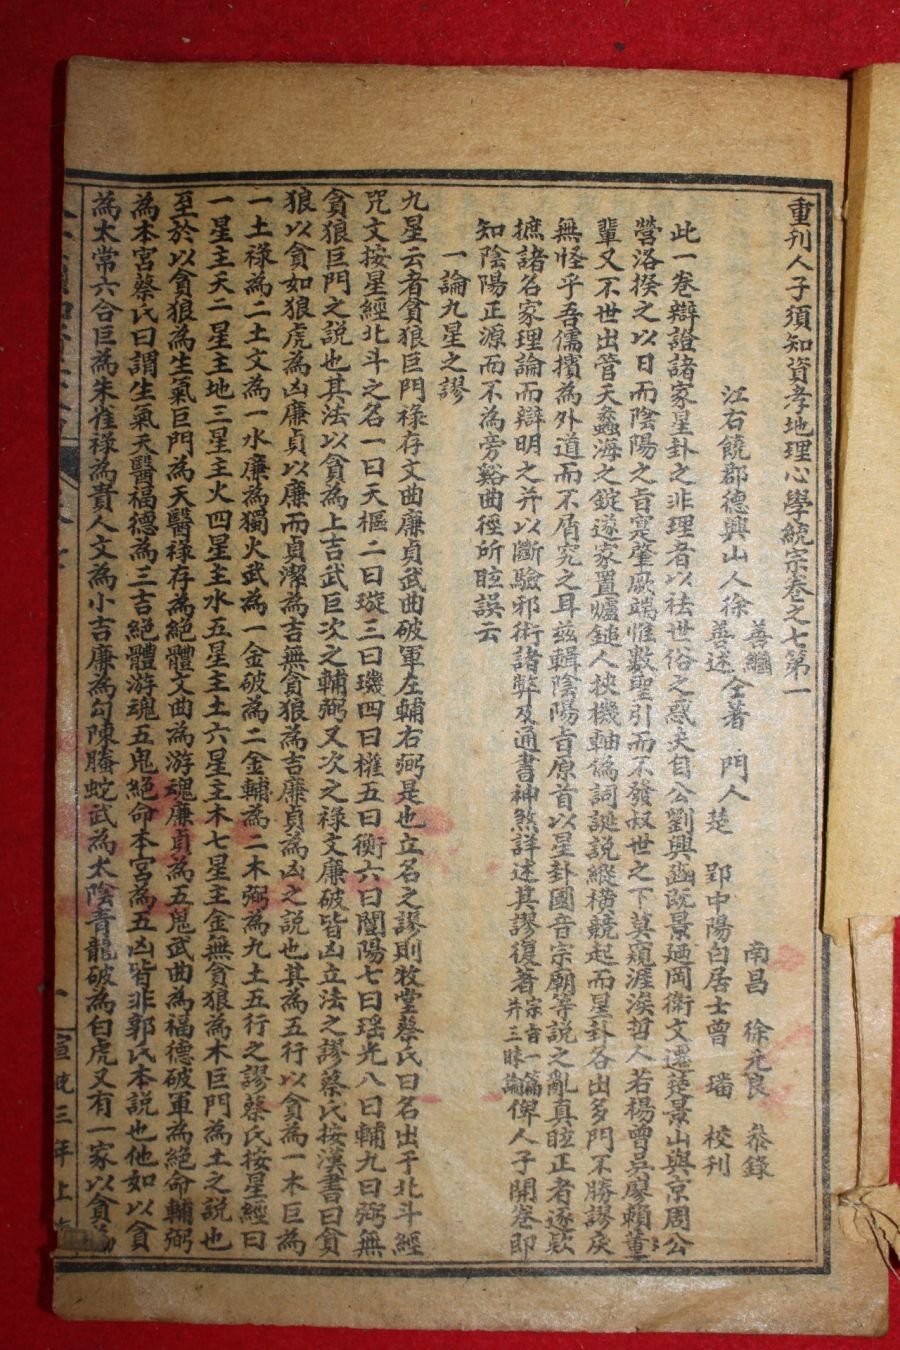 重刊人子須知資孝地理心學統宗卷之七第一
江右饒郡德興山人徐善繼善述仝著 門人
南昌 徐允良 叅錄
楚 郢中陽白居士曾 璠 校刊
此一卷辯證諸家星卦之非理者以祛世俗之惑夫自公劉興豳既景廼岡衛文遷楚景山與京周公
營洛揆之以日而陰陽之旨寔肇厥端惟數聖引而不發叔世之下莫窺涯涘哲人若楊曾吳廖賴董
輩又不世出管天蠡海之錠遂家置爐鎚人挾機軸偽詞誕說縱橫競起而星卦各出多門不勝謬戾
無怪乎吾儒擯為外道而不屑究之耳茲輯陰陽旨原首以星卦國音宗廟等說之亂真眩正者逐欵
摭諸名家理論而辯明之并以斷驗邪術諸弊及通書神煞詳述其謬復著宗吉一篇并三昧論俾人子開卷即
知陰陽正源而不為旁谿曲徑所眩誤云
一論九星之謬
九星云者貪狼巨門祿存文曲廉貞武曲破軍左輔右弼是也立名之謬則牧堂蔡氏曰名出于北斗經
咒文按星經北斗之名一曰天樞二曰璇三曰璣四曰權五曰衡六曰闓陽七曰瑤光八曰輔九曰弼無
貪狼巨門之說也其法以貪為上吉武巨次之輔弼又次之祿文廉破皆凶立法之謬蔡氏按漢書曰貪
狼以貪如狼虎為凶廉貞以廉而貞潔為吉無貪狼為吉廉貞為凶之說也其為五行以貪為一木巨為
一土祿為二土文為一水廉為獨火武為一金破為二金輔為二木弼為九土五行之謬蔡氏按星經曰
一星主天二星主地三星主火四星主水五星主土六星主木七星主金無貪狼為木巨門為土之說也
至於以貪狼為生氣巨門為天醫祿存為絕體文曲為游魂廉貞為五鬼武曲為福德破軍為絕命輔弼
為本宮蔡氏曰謂生氣天醫福德為三吉絕體游魂五鬼絕命本宮為五凶皆非郭氏本說也他如以貪
為太常六合巨為朱雀祿為貴人文為小吉廉為勾陳螣蛇武為太陰青龍破為白虎又有一家以貪為
一 宣統三年上海